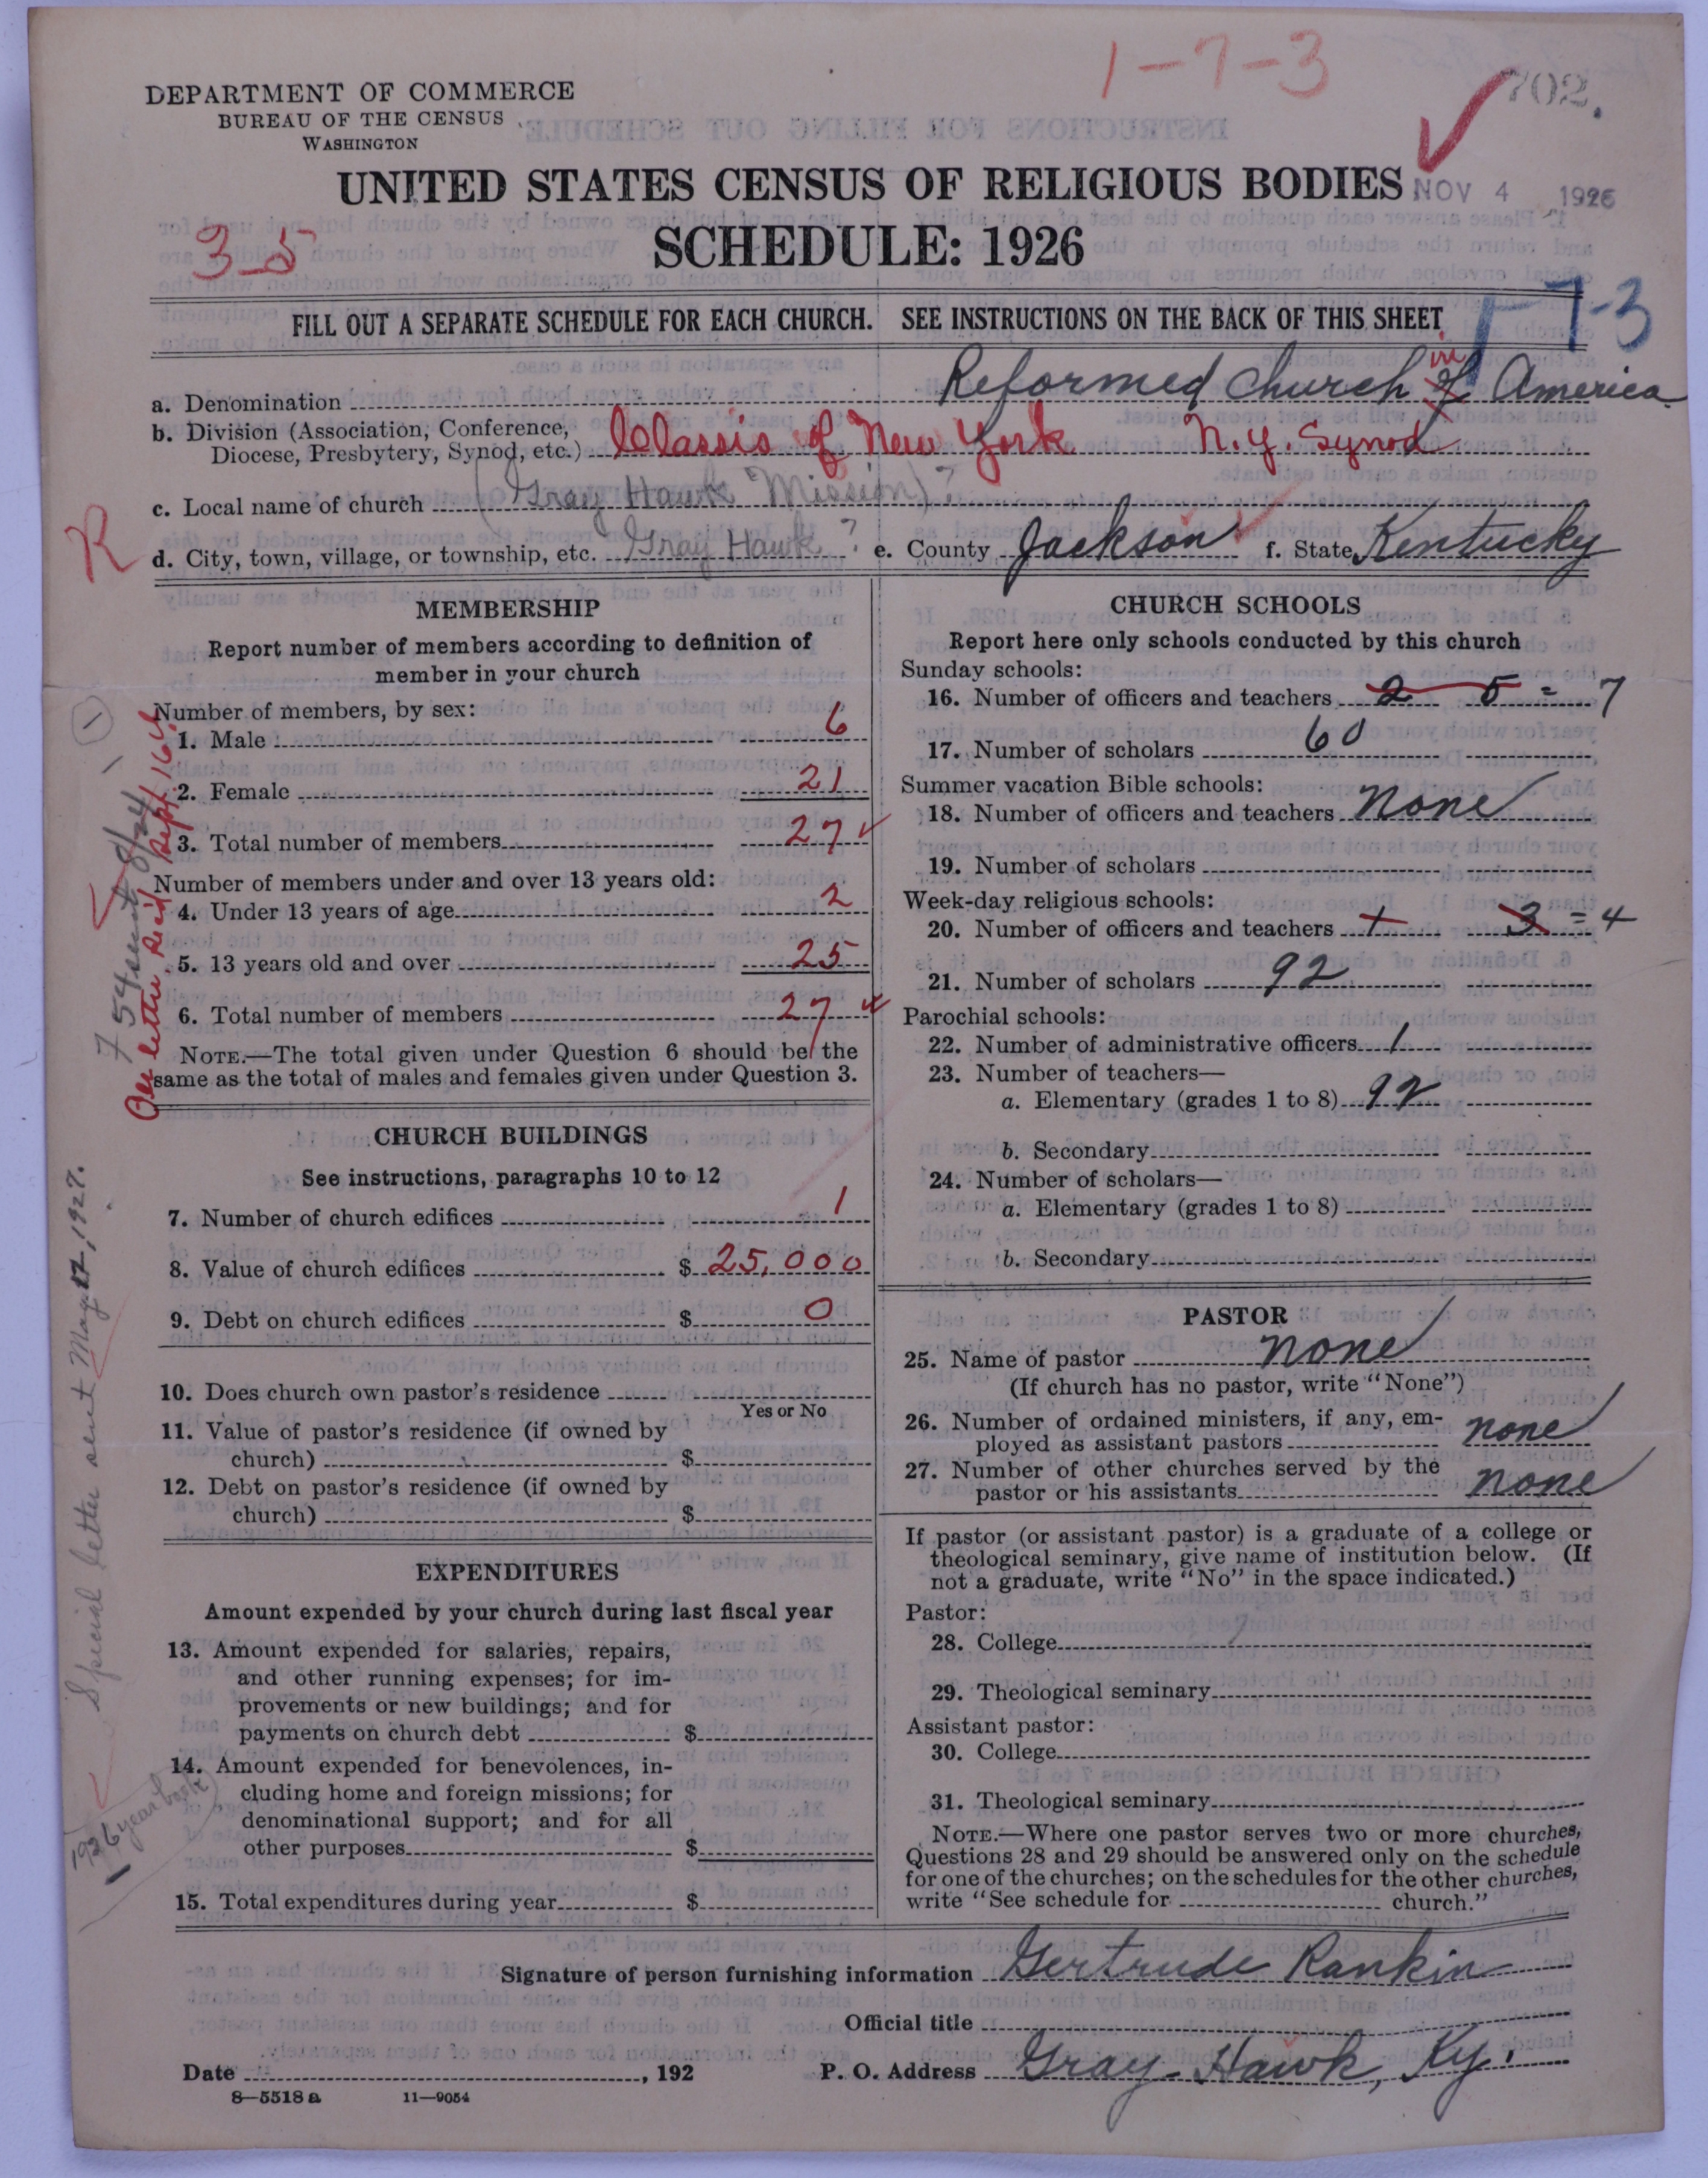 1-7-3
702.
DEPARTMENT OF COMMERCE
BUREAU OF THE CENSUS
WASHINGTON
UNITED STATES CENSUS OF RELIGIOUS BODIES
NOV 4 1926
3-5
SCHEDULE: 1926
1-7-3
FILL OUT A SEPARATE SCHEDULE FOR EACH CHURCH. SEE INSTRUCTIONS ON THE BACK OF THIS SHEET
a. Denomination Reformed Church of in America
b. Division (Association, Conference,
Diocese, Presbytery, Synod, etc.) Classis of New York N.Y. Synod
c. Local name of church (Gray Hawk Mission)?
R
d. City, town, village, or township, etc. Gray Hawk ? e. County Jackson f. State Kentucky
MEMBERSHIP
Report number of members according to definition of
member in your church
Number of members, by sex:
1. Male 6
2. Female 21
3. Total number of members 27
Number of members under and over 13 years old:
4. Under 13 years of age 2
5. 13 years old and over 25
6. Total number of members 27
NOTE.—The total given under Question 6 should be the
same as the total of males and females given under Question 3.
CHURCH BUILDINGS
See instructions, paragraphs 10 to 12
7. Number of church edifices 1
8. Value of church edifices $ 25,000
9. Debt on church edifices $ 0
10. Does church own pastor's residence
Yes or No
11. Value of pastor's residence (if owned by
church) $
12. Debt on pastor's residence (if owned by
church) $
EXPENDITURES
Amount expended by your church during last fiscal year
13. Amount expended for salaries, repairs,
and other running expenses; for im-
provements or new buildings; and for
payments on church debt $
14. Amount expended for benevolences, in-
cluding home and foreign missions; for
denominational support; and for all
other purposes $
15. Total expenditures during year $
CHURCH SCHOOLS
Report here only schools conducted by this church
Sunday schools:
16. Number of officers and teachers 2 5 = 7
17. Number of scholars 60
Summer vacation Bible schools:
18. Number of officers and teachers None
19. Number of scholars
Week-day religious schools:
20. Number of officers and teachers 1 3 = 4
21. Number of scholars 92
Parochial schools:
22. Number of administrative officers 1
23. Number of teachers—
a. Elementary (grades 1 to 8) 92
b. Secondary
24. Number of scholars—
a. Elementary (grades 1 to 8)
b. Secondary
PASTOR
25. Name of pastor None
(If church has no pastor, write "None")
26. Number of ordained ministers, if any, em-
ployed as assistant pastors None
27. Number of other churches served by the
pastor or his assistants None
If pastor (or assistant pastor) is a graduate of a college or
theological seminary, give name of institution below. (If
not a graduate, write "No" in the space indicated.)
Pastor:
28. College
29. Theological seminary
Assistant pastor:
30. College
31. Theological seminary
NOTE.—Where one pastor serves two or more churches,
Questions 28 and 29 should be answered only on the schedule
for one of the churches; on the schedules for the other churches,
write "See schedule for church."
Signature of person furnishing information Gertrude Rankin
Official title
Date , 192
P. O. Address Gray Hawk, Ky.
8—5518 a 11—9054
1
Our letter Sept 16
Special letter sent May 17, 1927.
1926 year book